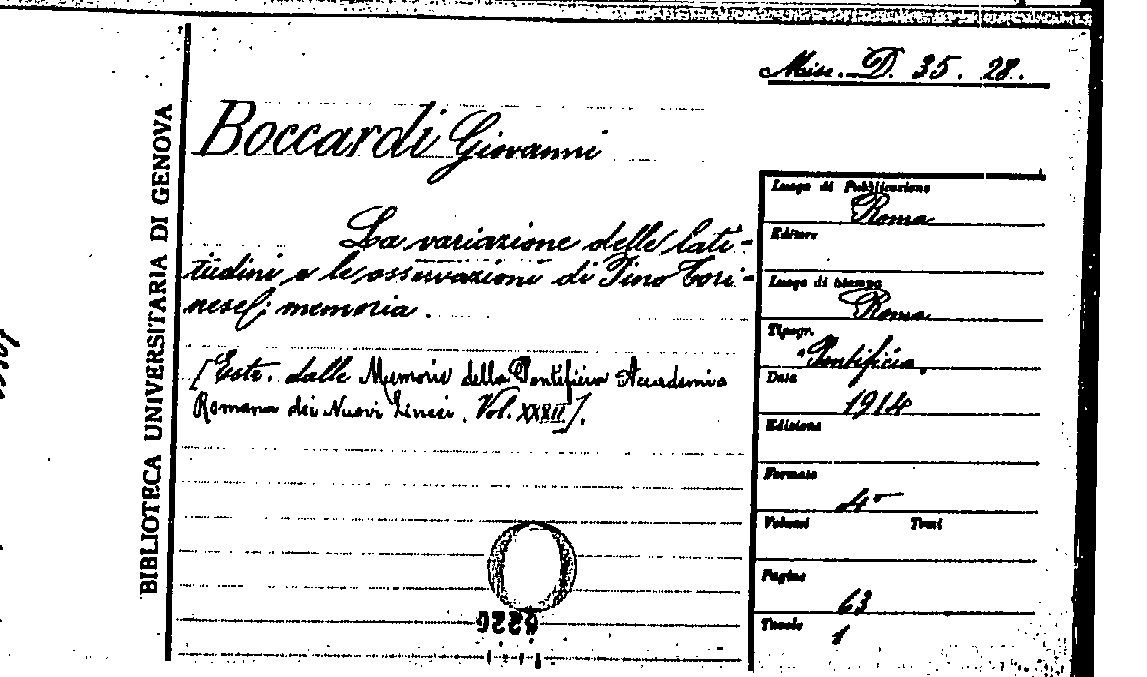 Misc. D. 35. 28.
BIBLIOTECA UNIVERSITARIA DI GENOVA
Boccardi Giovanni
La variazione delle lati-
tudini e le osservazioni di Pino Tori-
nese; memoria.
[Estr. dalle Memorie della Pontificia Accademia
Romana dei Nuovi Lincei. Vol. XXXII].
Luogo di Pubblicazione
Roma
Editore
Luogo di stampa
Roma
Tipogr.
Pontificia.
Data
1914
Edizione
Formato
4°
Volumi Tomi
Pagine
63
Tavole
1